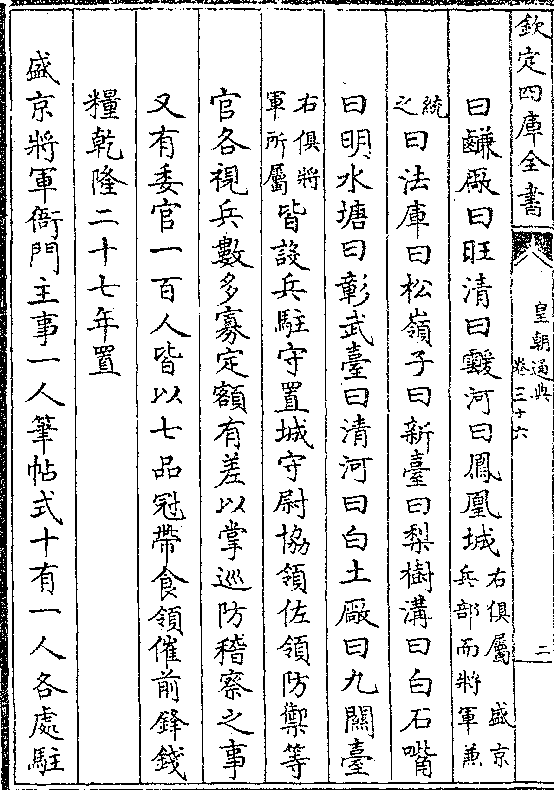 欽定四庫全書
皇朝通典
卷三十六
二
曰鹻厰曰旺清曰靉河曰鳳凰城右俱屬盛京兵部而將軍兼
統之曰法庫曰松嶺子曰新臺曰梨樹溝曰白石嘴
曰明水塘曰彰武臺曰清河曰白土厰曰九關臺
右俱將軍所屬皆設兵駐守置城守尉協領佐領防禦等
官各視兵數多寡定額有差以掌巡防稽察之事
又有委官一百人皆以七品冠帶食領催前鋒錢
糧乾隆二十七年置
盛京將軍衙門主事一人筆帖式十有一人各處駐